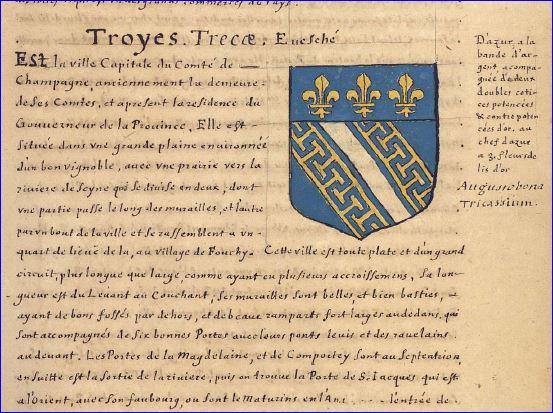 Troyes. Trecæ. Euesché
Est la ville Capitale du Comté de
Champagne, anciennement la demeure
de ses Comtes, et apresent la residence du
Gouuerneur de la Prouince. Elle est
située dans vne grande plaine enuironnée
d'un bon vignoble, auec vne prairie vers la
riuiere de Seyne qui se diuise en deux, dont
vne partie passe le long des murailles, et l'autre
par vn bout de la ville et se rassemblent a vn
quart de lieüe de la, au village de Fouchy. Cette ville est toute plate et d'un grand
circuit, plus longue que large, comme ayant eu plusieurs accroissemens, sa lon-
gueur est du Leuant au Couchant, ses murailles sont belles, et bien basties,
ayant de bons fossés par dehors, et de beaux ramparts fort larges au dedans, qui
sont accompagnés de six bonnes Portes auec leurs ponts leuis et des rauelains
au deuant. Les Portes de la Magdelaine, et de Comportey sont au Septentrion,
en suitte est la sortie de la riuiere, puis on trouue la Porte de S. Iacques qui est
a l'Orient, auec son faubourg, ou sont les Maturins l'entrée de
D'azur a la
bande d'ar-
gent acompa-
gnée de deux
doubles coti-
ces potencées
& contrepoten-
cées d'or, au
chef d'azur
a 3. fleurs de
lis d'or
Augustobona
Tricassium.